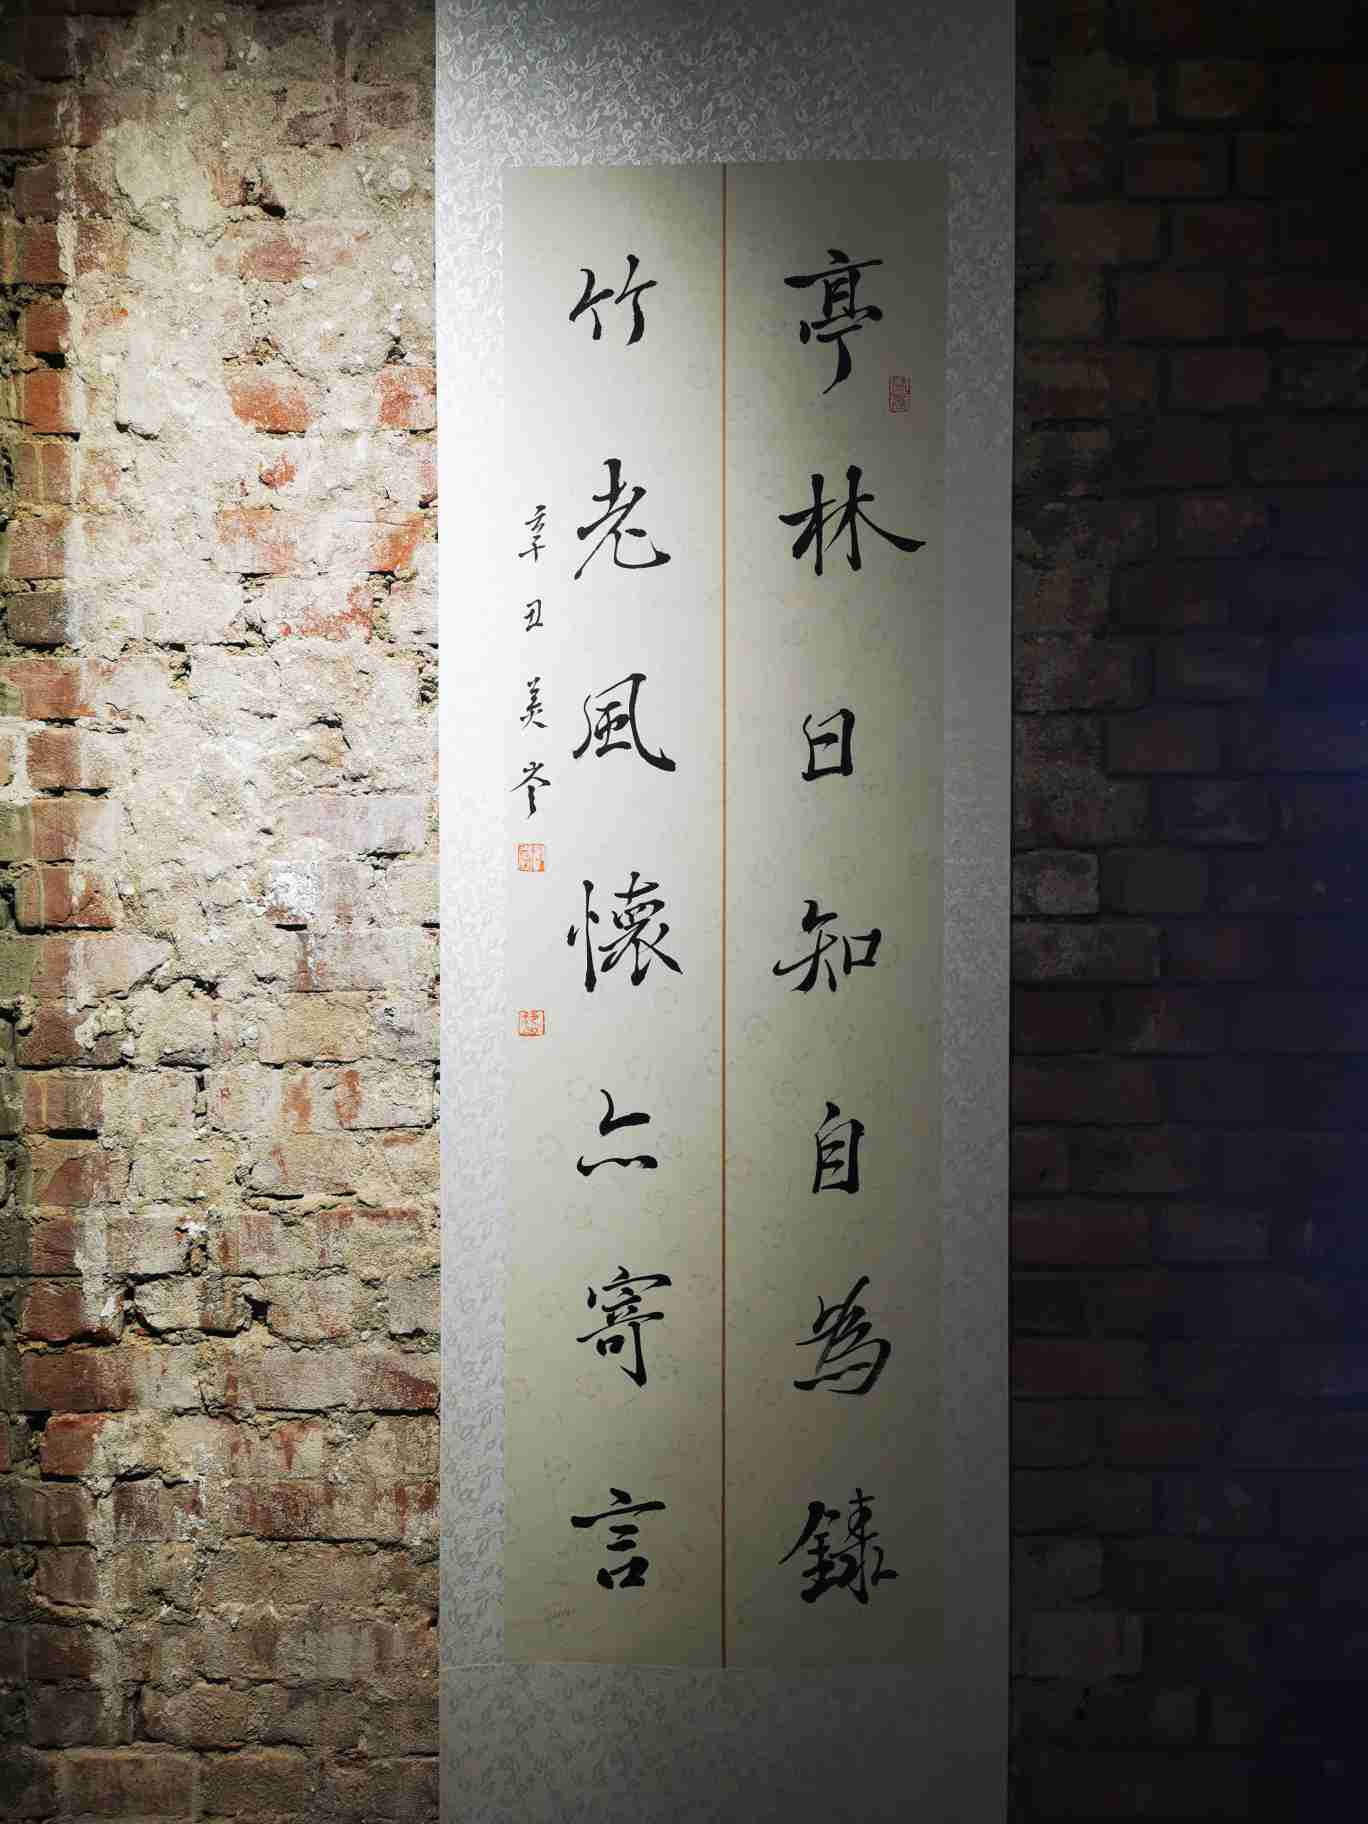 亭林日知自為錄
竹老風懷亦寄言
辛丑美岑